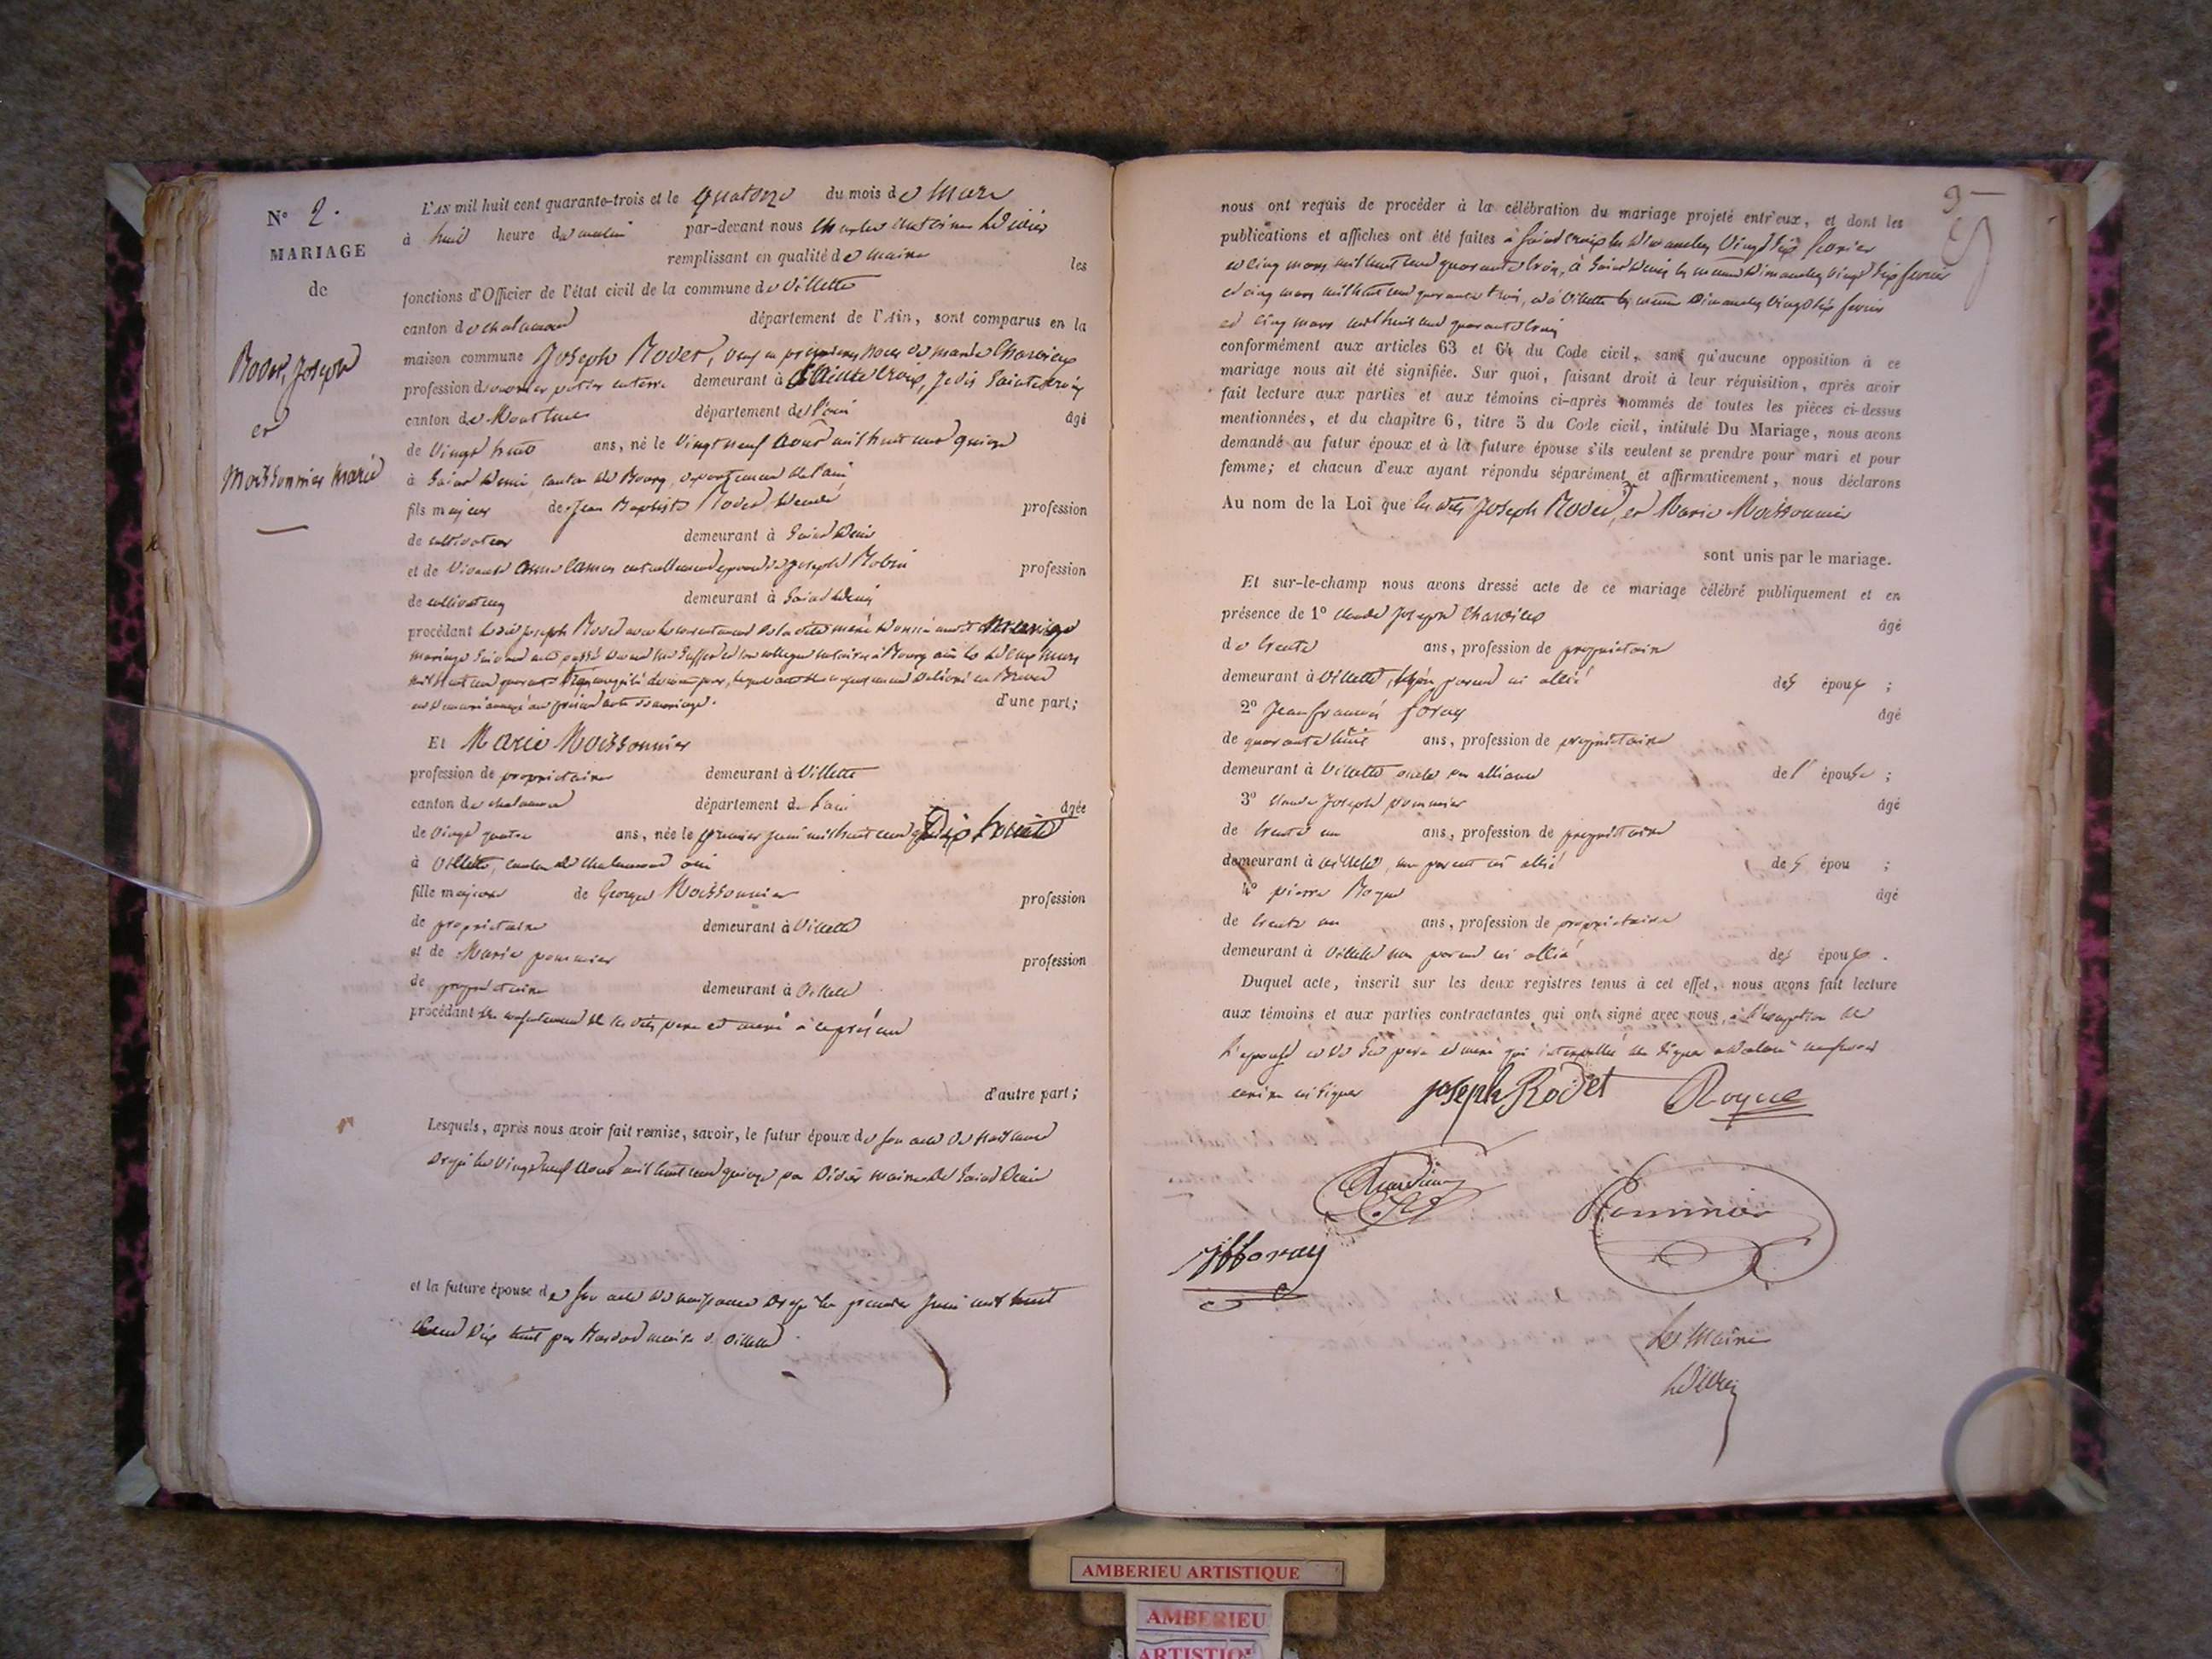 N° 2.
MARIAGE
de
Rodet, Joseph
et
Moissonnier Marie
L'AN mil huit cent quarante-trois et le quatorze du mois de Mars
à huit heure du matin par-devant nous Charles antoine
remplissant en qualité de maire les
fonctions d'Officier de l'état civil de la commune de Villette
canton de chalamont département de l'Ain, sont comparus en la
maison commune Joseph Rodet, veuf en premières noces de marie
profession d demeurant à Sainte Croix, je dis Sainte Croix
canton de Montluel département de l'ain âgé
de Vingt huit ans, né le Vingt neuf Aout mil huit cent quinze
à Saint Denis, canton de Bourg, département de l'ain
fils majeur de Jean Baptiste Rodet profession
de cultivateur demeurant à Saint Denis
et de actuellement épouse de Joseph Robin profession
de cultivateurs demeurant à Saint Denis
procédant le dit Joseph Rodet avec le consentement de la dite mère
mariage suivant acte passé notaires à Bourg mars
mil huit cent quarante trois
au présent acte de mariage. d'une part;
Et Marie Moissonnier
profession de propriétaire demeurant à Villette
canton de chalamont département de l'ain âgée
de vingt quatre ans, née le premier juin mil huit cent Dix huit
à Villette, canton de chalamont ain
fille majeure de George Moissonnier profession
de propriétaire demeurant à Villette
et de Marie pommier profession
de propriétaire demeurant à Villette
procédant du consentement de ses dits père et mère à ce présent
d'autre part;
Lesquels, après nous avoir fait remise, savoir, le futur époux de son acte de naissance
reçu le Vingt neuf Aout mil huit cent quinze par Didier maire de Saint Denis
et la future épouse de son acte de naissance reçu le premier Juin mil huit
Cent Dix huit par maire de Villette
nous ont requis de procéder à la célébration du mariage projeté entr'eux, et dont les
publications et affiches ont été faites à Sainte Croix les Dimanches Vingt six fevrier
et cinq mars mil huit cent quarante trois, à Saint Denis les mêmes Dimanches vingt six fevrier
et cinq mars mil huit cent quarante trois, et à Villette les mêmes Dimanches Vingt six fevrier
et cinq mars mil huit cent quarante trois
conformément aux articles 63 et 64 du Code civil, sans qu'aucune opposition à ce
mariage nous ait été signifiée. Sur quoi, faisant droit à leur réquisition, après avoir
fait lecture aux parties et aux témoins ci-après nommés de toutes les pièces ci-dessus
mentionnées, et du chapitre 6, titre 5 du Code civil, intitulé Du Mariage, nous avons
demandé au futur époux et à la future épouse s'ils veulent se prendre pour mari et pour
femme; et chacun d'eux ayant répondu séparément et affirmativement, nous déclarons
Au nom de la Loi que les dits Joseph Rodet, et Marie Moissonnier
sont unis par le mariage.
Et sur-le-champ nous avons dressé acte de ce mariage célébré publiquement et en
présence de 1° Claude Joseph âgé
de trente ans, profession de propriétaire
demeurant à Villette, parent ni allié des époux ;
2° Jean françois foray âgé
de quarante huit ans, profession de propriétaire
demeurant à Villette oncle par alliance de l' épouse ;
3° Claude Joseph pommier âgé
de trente un ans, profession de propriétaire
demeurant à Villette, non parent ni allié des épou ;
4° pierre Roque âgé
de trente un ans, profession de propriétaire
demeurant à Villette non parent ni allié des époux .
Duquel acte, inscrit sur les deux registres tenus à cet effet, nous avons fait lecture
aux témoins et aux parties contractantes qui ont signé avec nous, à l'exception de
l'épouse et de ses père et mère qui interpellés de signer ont déclaré ne savoir
écrire ni signer Joseph Rodet Roque
Pommier
jf foray
Le Maire
AMBERIEU ARTISTIQUE
AMBERIEU
ARTISTIQ